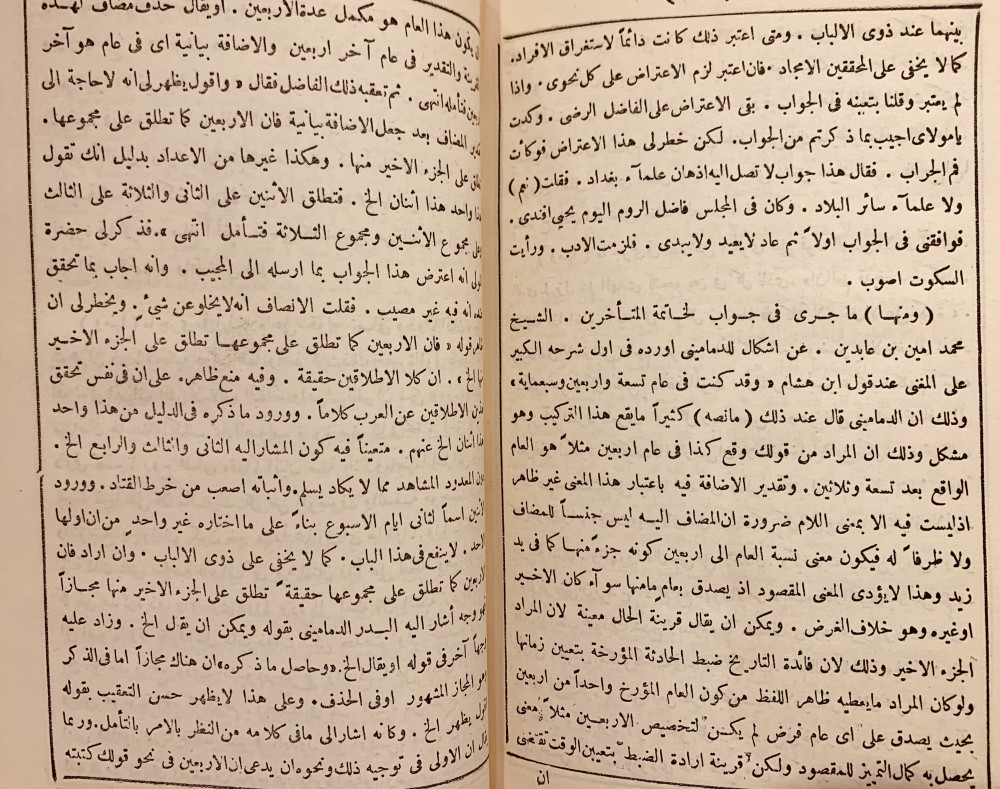 بينهما عند ذوى الالباب . ومتى اعتبر ذلك كانت دائماً لاستغراق الافراد.
كما لا يخفى على المحققين الامجاد . فان اعتبر لزم الاعتراض على كل نحوى . واذا
لم يعتبر وقلنا بتعينه فى الجواب . بقى الاعتراض على الفاضل الرضى . وكدت
يامولاى اجيب بما ذكرتم من الجواب. لكن خطر لى هذا الاعتراض فوكأت
فم الجراب . فقال هذا جواب لا تصل اليه اذهان علمآء بغداد . فقلت (نعم)
ولا علمآء سائر البلاد . وكان فى المجلس فاضل الروم اليوم يحيى افندى .
فوافقنى فى الجواب اولاً ثم عاد لايعيد ولايبدى . فلزمت الادب . ورأيت
السكوت اصوب .
( ومنها ) ما جرى فى جواب لخاتمة المتأخرين . الشيخ
محمد امين بن عابدين . عن اشكال للدمامينى اورده فى اول شرحه الكبير
على المغنى عند قول ابن هشام « وقد كنت فى عام تسعة واربعين وسبعماية »
وذلك ان الدمامينى قال عند ذلك ( مانصه ) كثيراً مايقع هذا التركيب وهو
مشكل وذلك ان المراد من قولك وقع كذا فى عام اربعين مثلاً هو العام
الواقع بعد تسعة وثلاثين . وتقدير الاضافة فيه باعتبار هذا المعنى غير ظاهر
اذ ليست فيه الا بمعنى اللام ضرورة ان المضاف اليه ليس جنساً للمضاف
ولا ظرفاً له فيكون معنى نسبة العام الى اربعين كونه جزءً منها كما فى يد
زيد وهذا لايؤدى المعنى المقصود اذ يصدق بعام مامنها سوآء كان الاخير
اوغيره وهو خلاف الغرض . ويمكن ان يقال قرينة الحال معينة لان المراد
الجزء الاخير وذلك لان فائدة التاريخ ضبط الحادثة المؤرخة بتعيين زمانها
ولوكان المراد مايعطيه ظاهر اللفظ من كون العام المؤرخ واحداً من اربعين
بحيث يصدق على اى عام فرض لم يكن لتخصيص الاربعين مثلاً معنى
يحصل به كمال التمييز للمقصود ولكن قرينة ارادة الضبط بتعيين الوقت تقتضى
ان
يكون هذا العام هو مكمل عدة الاربعين . اويقال حذف مضاف لهذه
والتقدير فى عام آخر اربعين والاضافة بيانية اى فى عام هو آخر
فتأمله انتهى . ثم تعقبه ذلك الفاضل فقال « واقول يظهر لى انه لاحاجة الى
المضاف بعد جعل الاضافة بيانية فان الاربعين كما تطلق على مجموعها.
على الجزء الاخير منها . وهكذا غيرها من الاعداد بدليل انك تقول
واحد هذا أثنان الخ . فتطلق الأثنين على الثانى والثلاثة على الثالث
مجموع الأثنين ومجموع الثلاثة فتأمل انتهى ». فذكر لى حضرة
انه اعترض هذا الجواب بما ارسله الى المجيب . وانه اجاب بما تحقق
انه فيه غير مصيب . فقلت الانصاف انه لايخلو عن شئ . ويخطر لى ان
قوله « فان الاربعين كما تطلق على مجموعها تطلق على الجزء الاخير
الخ » . ان كلا الاطلاقين حقيقة . وفيه منع ظاهر. على ان فى نفس تحقق
الاطلاقين عن العرب كلاماً . وورود ما ذكره فى الدليل من هذا واحد
أثنان الخ عنهم . متعيناً فيه كون المشار اليه الثانى والثالث والرابع الخ .
المعدود المشاهد مما لا يكاد يسلم. واثباته اصعب من خرط القتاد . وورود
اسماً لثانى ايام الاسبوع بناءً على ما اختاره غير واحد من ان اولها
لاينفع فى هذا الباب . كما لا يخفى على ذوى الالباب . وان اراد فان
كما تطلق على مجموعها حقيقة تطلق على الجزء الاخير منها مجازاً
وجه أشار اليه البدر الدمامينى بقوله ويمكن ان يقال الخ . وزاد عليه
آخر فى قوله اويقال الخ. « وحاصل ما ذكره » ان هناك مجازاً اما فى الذكر
المجاز المشهور اوفى الحذف . وعلى هذا لايظهر حسن التعقيب بقوله
يظهر الخ . وكانه اشار الى مافى كلامه من النظر بالامر بالتأمل . وربما
ان الاولى فى توجيه ذلك ونحوه ان يدعى ان الاربعين فى نحو قولك كتبته